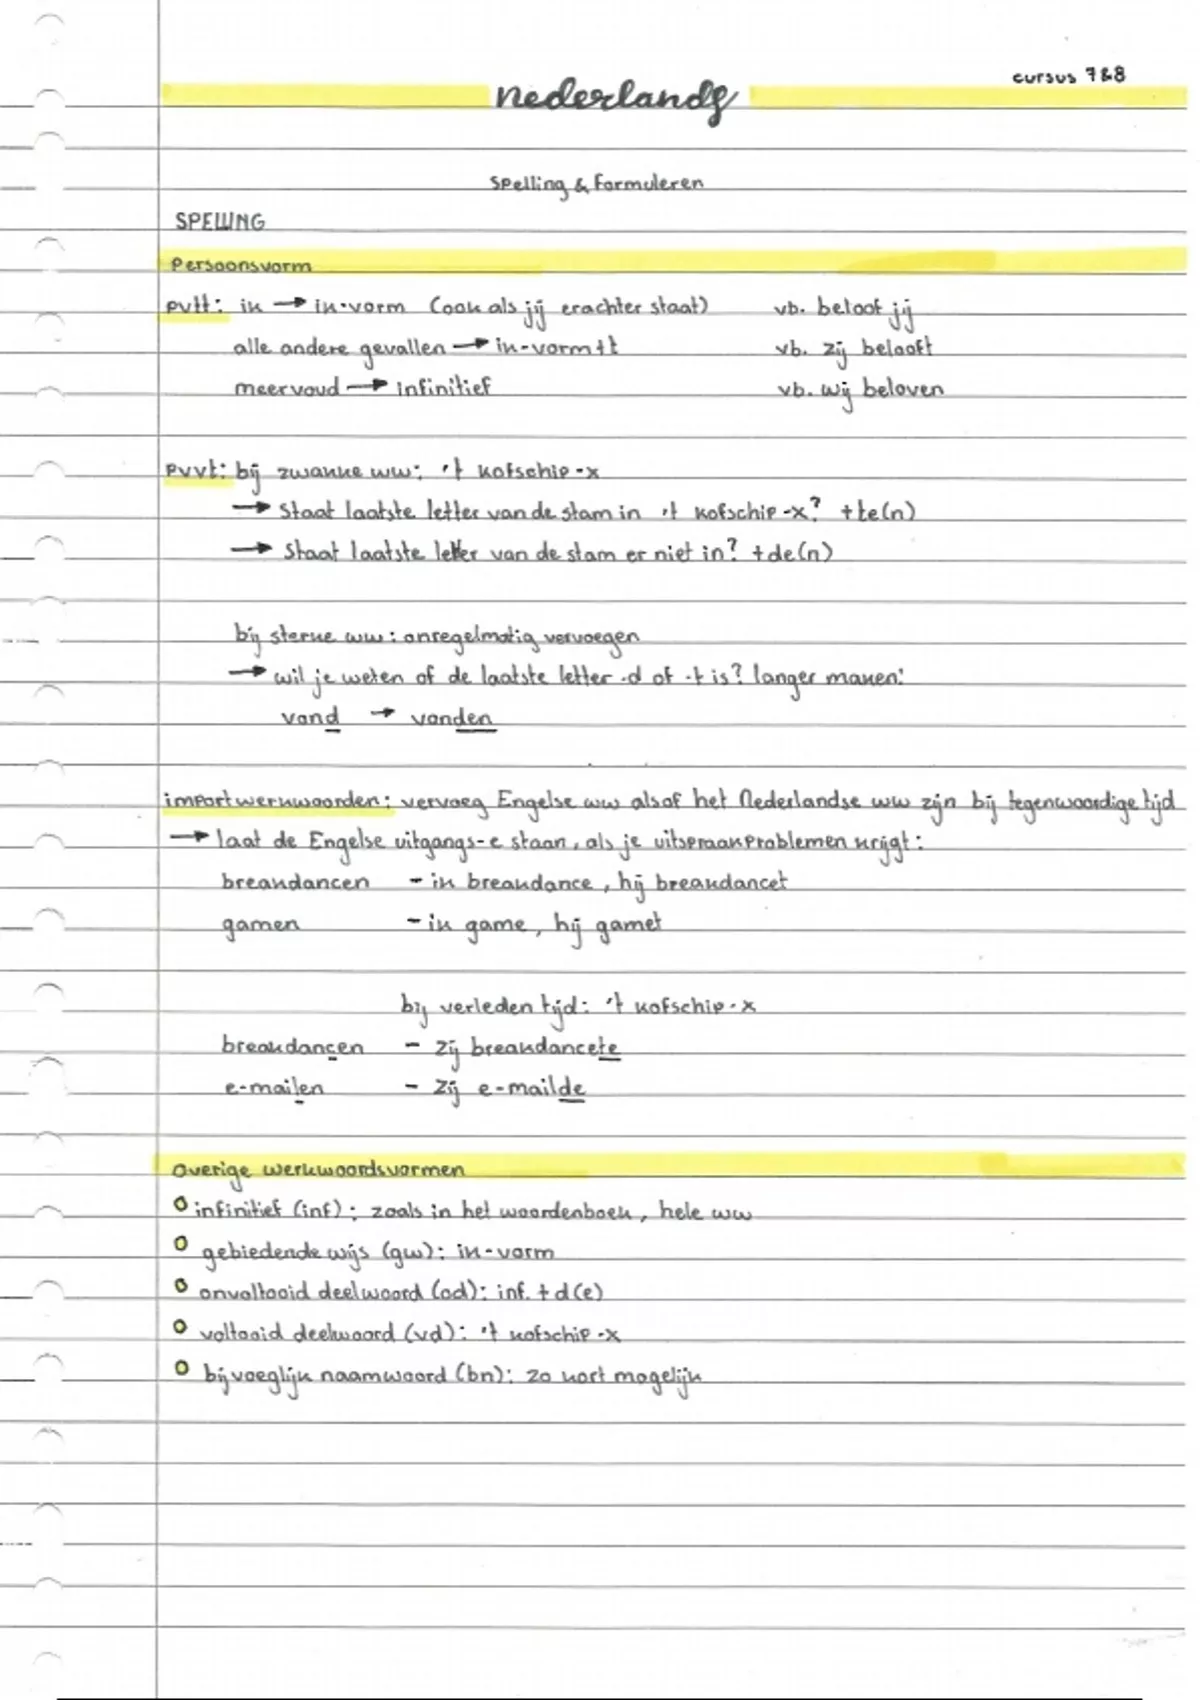 cursus 7&8
nederlands
Spelling & Formuleren
SPELLING
Persoonsvorm
pvtt: ik → ik-vorm (ook als jij erachter staat) vb. beloof jij
alle andere gevallen → ik-vorm+t vb. zij belooft
meervoud → infinitief vb. wij beloven
pvvt: bij zwakke ww: 't kofschip-x
→ Staat laatste letter van de stam in 't kofschip-x? +te(n)
→ Staat laatste letter van de stam er niet in? +de(n)
bij sterke ww: onregelmatig vervoegen
→ wil je weten of de laatste letter -d of -t is? langer maken:
vond → vonden
importwerkwoorden: vervoeg Engelse ww alsof het Nederlandse ww zijn bij tegenwoordige tijd
→ laat de Engelse uitgangs-e staan, als je uitspraakproblemen krijgt:
breakdancen - ik breakdance, hij breakdancet
gamen - ik game, hij gamet
bij verleden tijd: 't kofschip-x
breakdancen - zij breakdancete
e-mailen - zij e-mailde
Overige werkwoordsvormen
infinitief (inf): zoals in het woordenboek, hele ww
gebiedende wijs (gw): ik-vorm
onvoltooid deelwoord (od): inf. + d(e)
voltooid deelwoord (vd): 't kofschip-x
bijvoeglijk naamwoord (bn): zo kort mogelijk